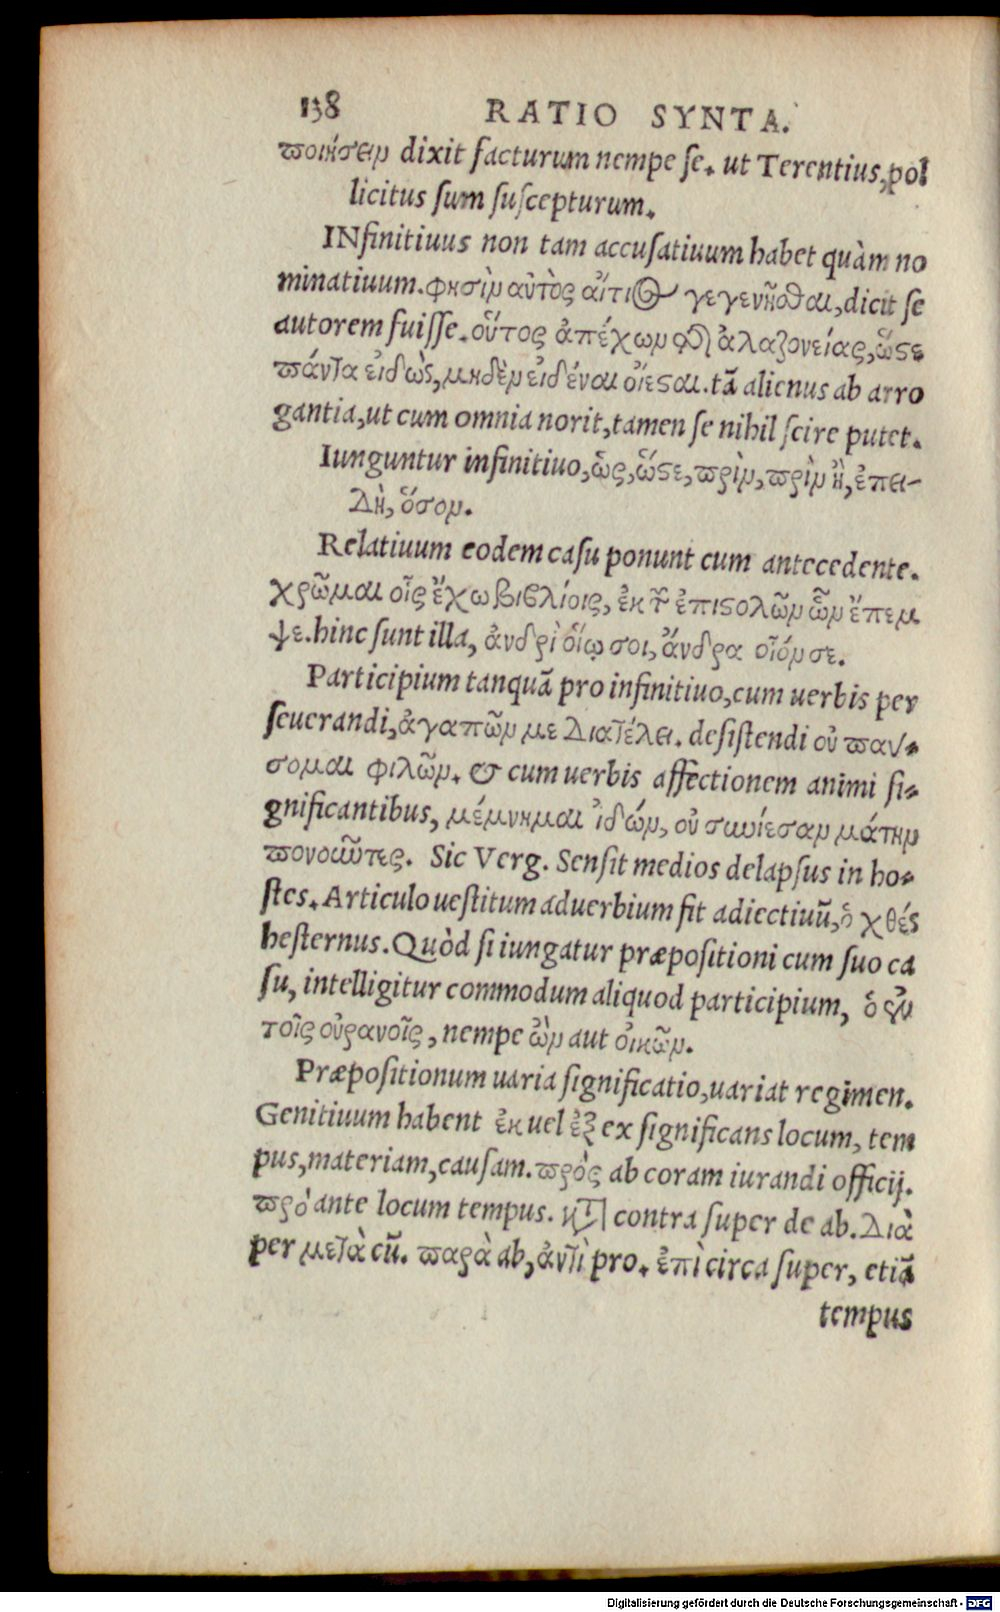 138 RATIO SYNTA.
ποιήσειν dixit facturum nempe se. ut Terentius, pol
licitus sum suscepturum.
INfinitiuus non tam accusatiuum habet quàm no
minatiuum. φησὶν αὐτὸς αἴτιος γεγενῆσθαι, dicit se
autorem fuisse. οὗτος ἀπέχων τῆς ἀλαζονείας, ὥστε
πάντα εἰδὼς, μηδὲν εἰδέναι οἴεσαι. tā alienus ab arro
gantia, ut cum omnia norit, tamen se nihil scire putet.
Iunguntur infinitiuo, ὡς, ὥστε, πρὶν, πρὶν ἢ, ἐπει-
δὴ, ὅσον.
Relatiuum eodem casu ponunt cum antecedente.
χρῶμαι οἷς ἔχω βιβλίοις, ἐκ τῶν ἐπιστολῶν ὧν ἔπεμ
ψε. hinc sunt illa, ἀνδρὶ οἵῳ σοι, ἄνδρα οἷόν σε.
Participium tanquā pro infinitiuo, cum uerbis per
seuerandi, ἀγαπῶν με διατέλει. desistendi οὐ παύ-
σομαι φιλῶν. & cum uerbis affectionem animi si-
gnificantibus, μέμνημαι ἰδών, οὐ συνίεσαν μάτην
πονοῦντες. Sic Verg. Sensit medios delapsus in ho-
stes. Articulo uestitum aduerbium fit adiectiuū, ὁ χθές
hesternus. Quòd si iungatur præpositioni cum suo ca
su, intelligitur commodum aliquod participium, ὁ ἐν
τοῖς οὐρανοῖς, nempe ὢν aut οἰκῶν.
Præpositionum uaria significatio, uariat regimen.
Genitiuum habent ἐκ uel ἐξ ex significans locum, tem
pus, materiam, causam. πρὸς ab coram iurandi officij.
πρὸ ante locum tempus. κατὰ contra super de ab. διὰ
per μετὰ cū. παρὰ ab, ἀντὶ pro. ἐπὶ circa super, etiā
tempus
Digitalisierung gefördert durch die Deutsche Forschungsgemeinschaft - DFG